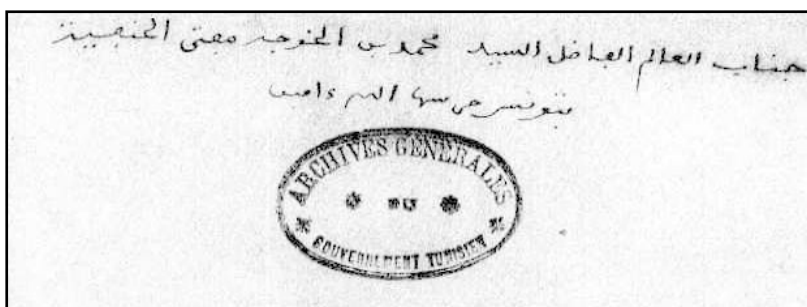 جناب العالم الفاضل السيد محمد بن الخوجه مفتي الحنفية
بتونس حرسها الله وامين
ARCHIVES GENERALES
DU
GOUVERNEMENT TUNISIEN